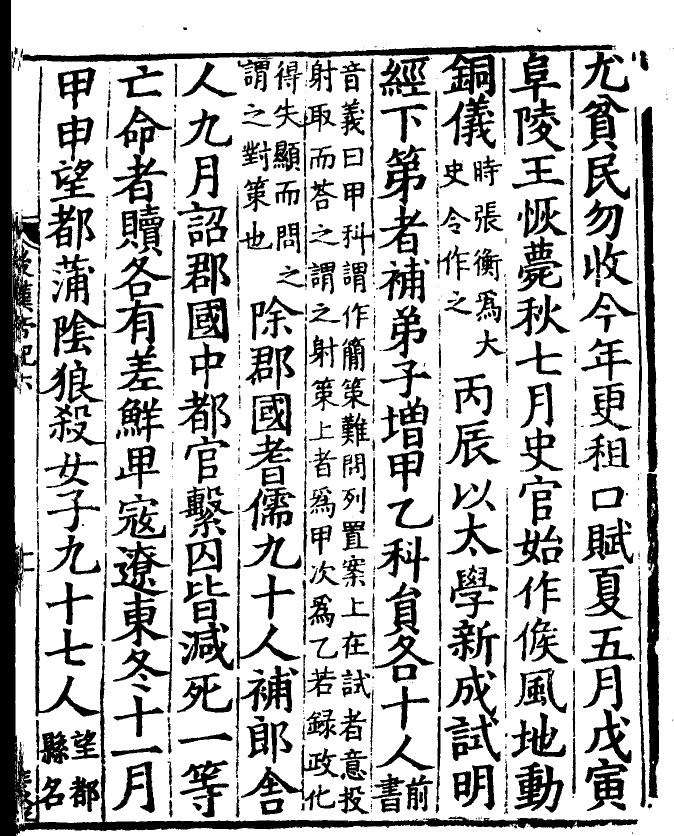 尤貧民勿收今年更租口賦夏五月戊寅
阜陵王恢薨秋七月史官始作候風地動
銅儀時張衡爲大史令作之丙辰以太學新成試明
經下第者補弟子增甲乙科員各十人前書
音義曰甲科謂作簡策難問列置案上在試者意投
射取而荅之謂之射策上者爲甲次爲乙若錄政化
得失顯而問之謂之對策也除郡國耆儒九十人補郎舍
人九月詔郡國中都官繫囚皆減死一等
亡命者贖各有差鮮卑寇遼東冬十一月
甲申望都蒲陰狼殺女子九十七人望都縣名
後漢帝紀六